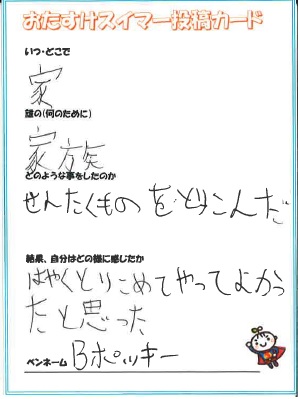 おたすけスイマー投稿カード
いつ・どこで
家
誰の(何のために)
家族
どのような事をしたのか
せんたくものをとりこんだ
結果、自分はどの様に感じたか
はやくとりこめてやってよかっ
たと思った
ペンネーム Bポッキー